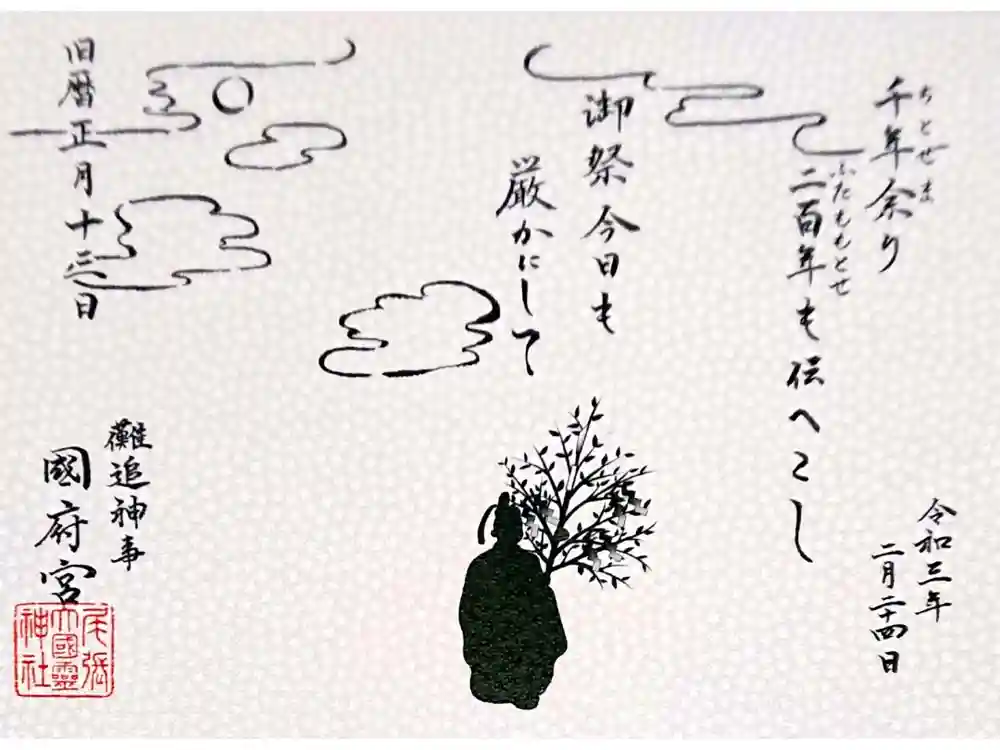 千年余り
ちとせま
二百年も伝へこし
ふたももとせ
御祭今日も
厳かにして
旧暦正月十三日
令和三年
二月二十四日
難追神事
國府宮
尾張
大國霊
神社